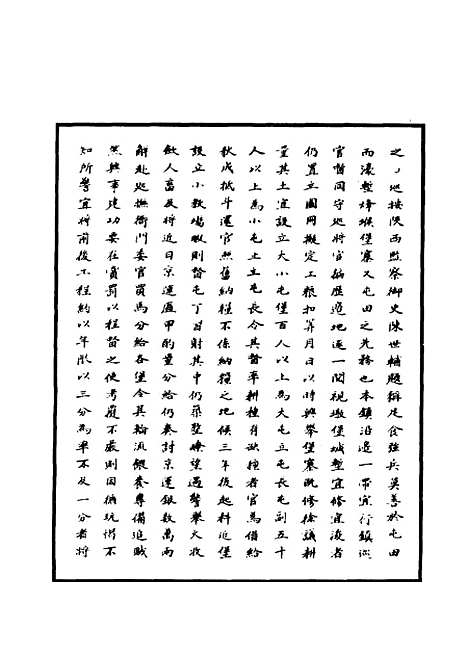 之〻巡按陝西監察御史陳世輔題稱足食強兵莫善於屯田
而濬塹烽堠堡寨又屯田之先務也本鎮沿邊一帶宜行鎮巡
官督同守巡將官徧歷邊地逐一閱視墩堡城塹宜修宜浚者
仍置立圖冊擬定工粮扣筭月日以時興舉堡寨既修徐議耕
墾其土宜設立大小屯堡百人以上為大屯立屯長屯副五十
人以上為小屯止立屯長令其督率耕種有欲種者官為借給
秋成抵斗還官然舊納糧不係納糧之地候三年後起科近堡
設立小教場暇則督屯丁習射其中仍嚴整瞭望遇警舉火收
斂人畜及將近日京運盔甲酌量分給仍奏討京運銀數萬兩
解赴巡撫衙門委官買馬分給各堡令其輪流餵養專備追賊
然興事建功要在賞罰以程督之使考覈不嚴則因循玩愒不
知所警宜將前後工程約以年限以三分為率不及一分者將